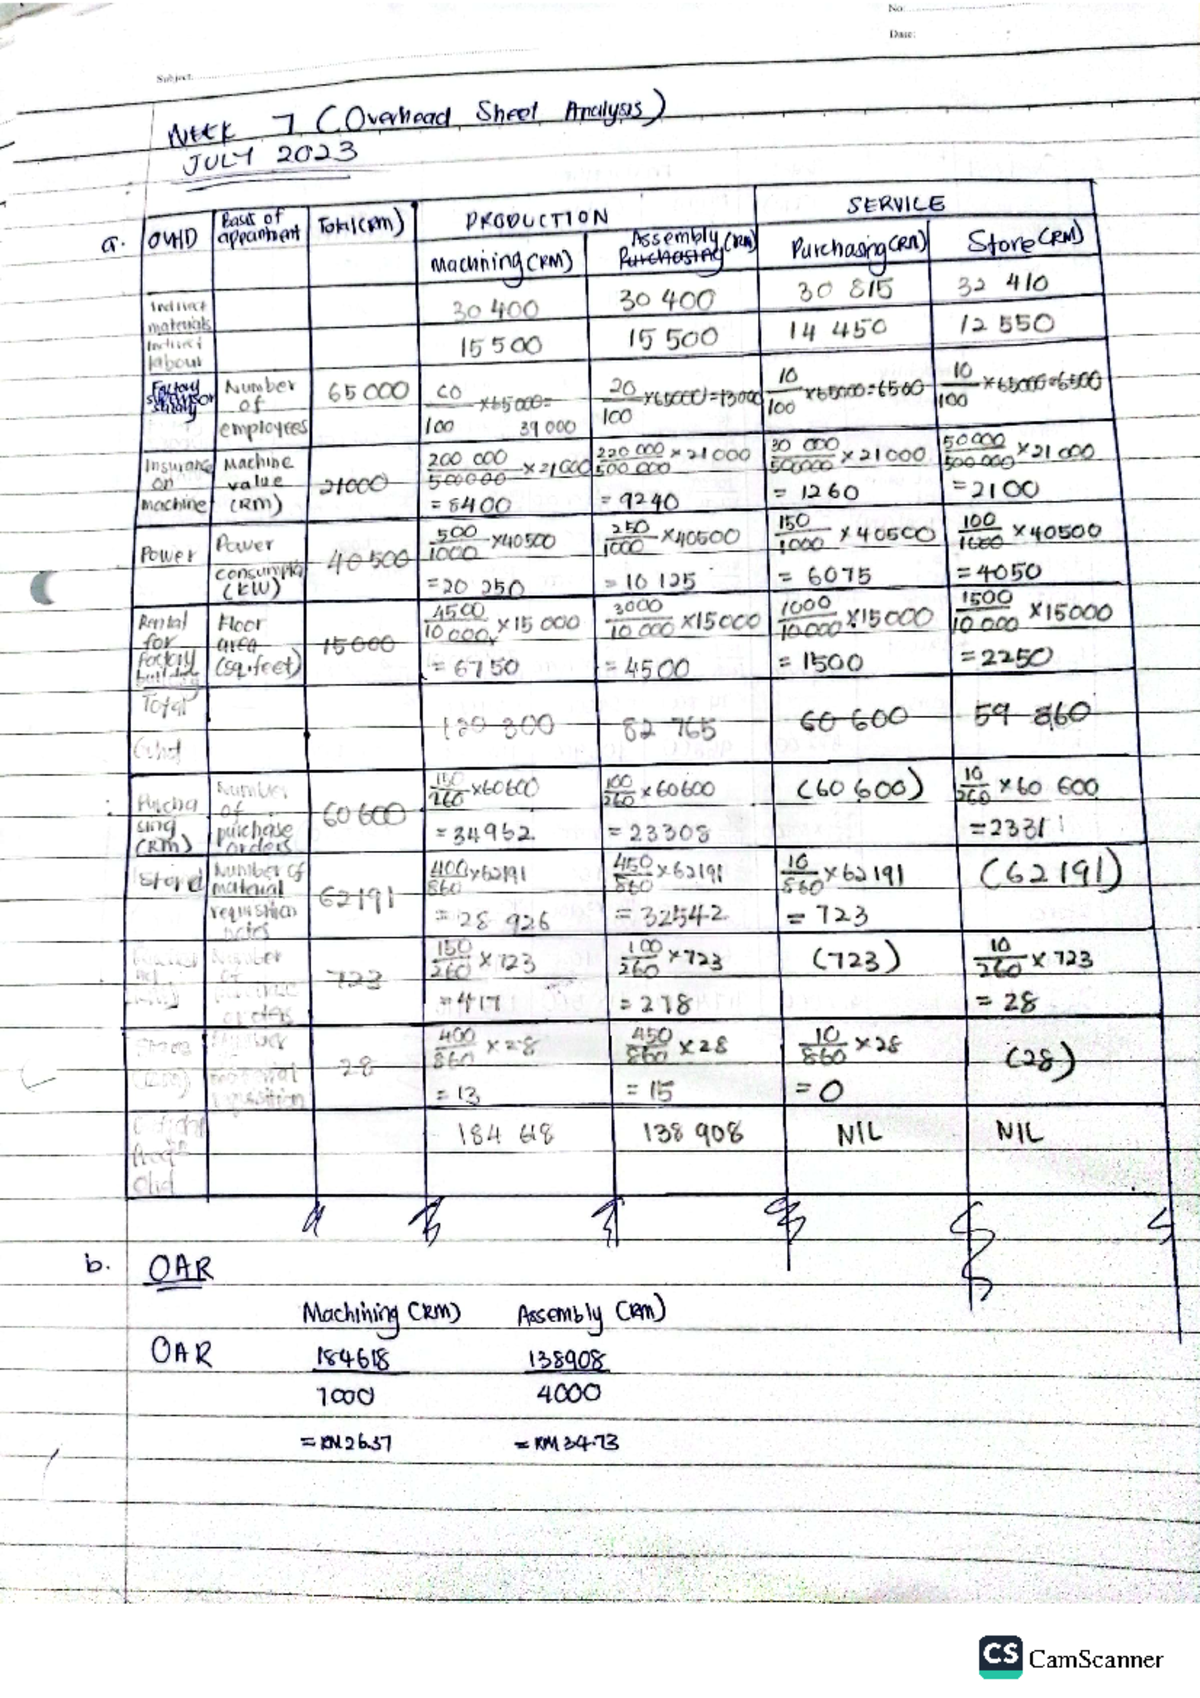 No:
Date:
Subject:
WEEK 7 (Overhead Sheet Analysis)
JULY 2023
a. OVHD Basis of appointment Total (RM) PRODUCTION SERVICE
Machining (RM) Assembly (RM) Purchasing (RM) Store (RM)
Indirect materials 30 400 30 400 30 815 32 410
Indirect labour 15 500 15 500 14 450 12 550
Factory supervisor Number of employees 65 000 60/100 × 65000 = 39 000 20/100 × 65000 = 13000 10/100 × 65000 = 6500 10/100 × 65000 = 6500
Insurance on machine Machine value (RM) 21000 200 000/500000 × 21000 = 8400 220 000/500 000 × 21000 = 9240 30 000/500000 × 21000 = 1260 50000/500 000 × 21 000 = 2100
Power Power consumption (KW) 40 500 500/1000 × 40500 = 20 250 250/1000 × 40500 = 10 125 150/1000 × 40500 = 6075 100/1000 × 40500 = 4050
Rental for factory building Floor area (sq.feet) 15000 4500/10 000 × 15 000 = 6750 3000/10 000 × 15000 = 4500 1000/10000 × 15000 = 1500 1500/10 000 × 15000 = 2250
Total Ovhd 120 300 82 765 60 600 59 860
Purchasing (RM) Number of purchase orders 60 600 150/260 × 60600 = 34962 100/260 × 60600 = 23308 (60 600) 10/260 × 60 600 = 2331
Stored Number of material requisition 62191 400/860 × 62191 = 28 926 450/860 × 62191 = 32542 10/860 × 62191 = 723 (62191)
Number of orders 723 150/260 × 723 = 417 100/260 × 723 = 278 (723) 10/260 × 723 = 28
(RM) Number material requisition 28 400/860 × 28 = 13 450/860 × 28 = 15 10/860 × 28 = 0 (28)
Ovhd 184 618 138 908 NIL NIL
b. OAR
Machining (RM) Assembly (RM)
OAR 184618 138908
7000 4000
= RM 26.37 = RM 34.73
CS CamScanner